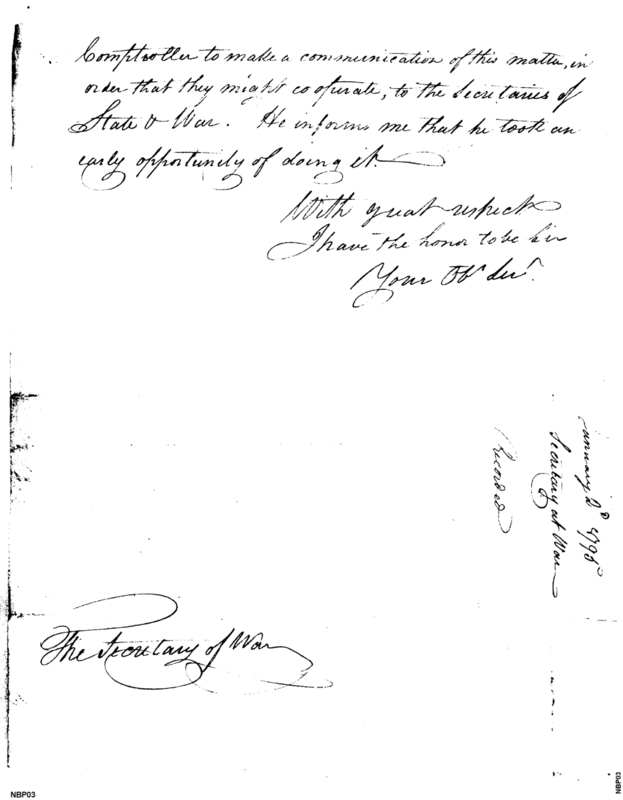 Comptroller to make a communication of this matter, in
order that they might cooperate, to the Secretaries of
State & War. He informs me that he took an
early opportunity of doing it.
With great respect
I have the honor to be Sir
Your Obt Servt.
January 2d 1795
Secretary at War
Recorded
The Secretary of War
NBP03
NBP03